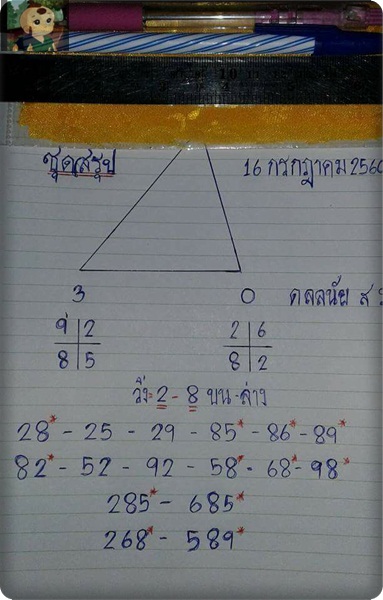 ชุดสรุป 16 กรกฎาคม 2560
3 0 ดลลนัย ส
9 2 2 6
8 5 8 2
วิ่ง 2 - 8 บน-ล่าง
28* - 25 - 29 - 85* - 86* - 89*
82* - 52 - 92 - 58* - 68* - 98*
285* - 685*
268* - 589*